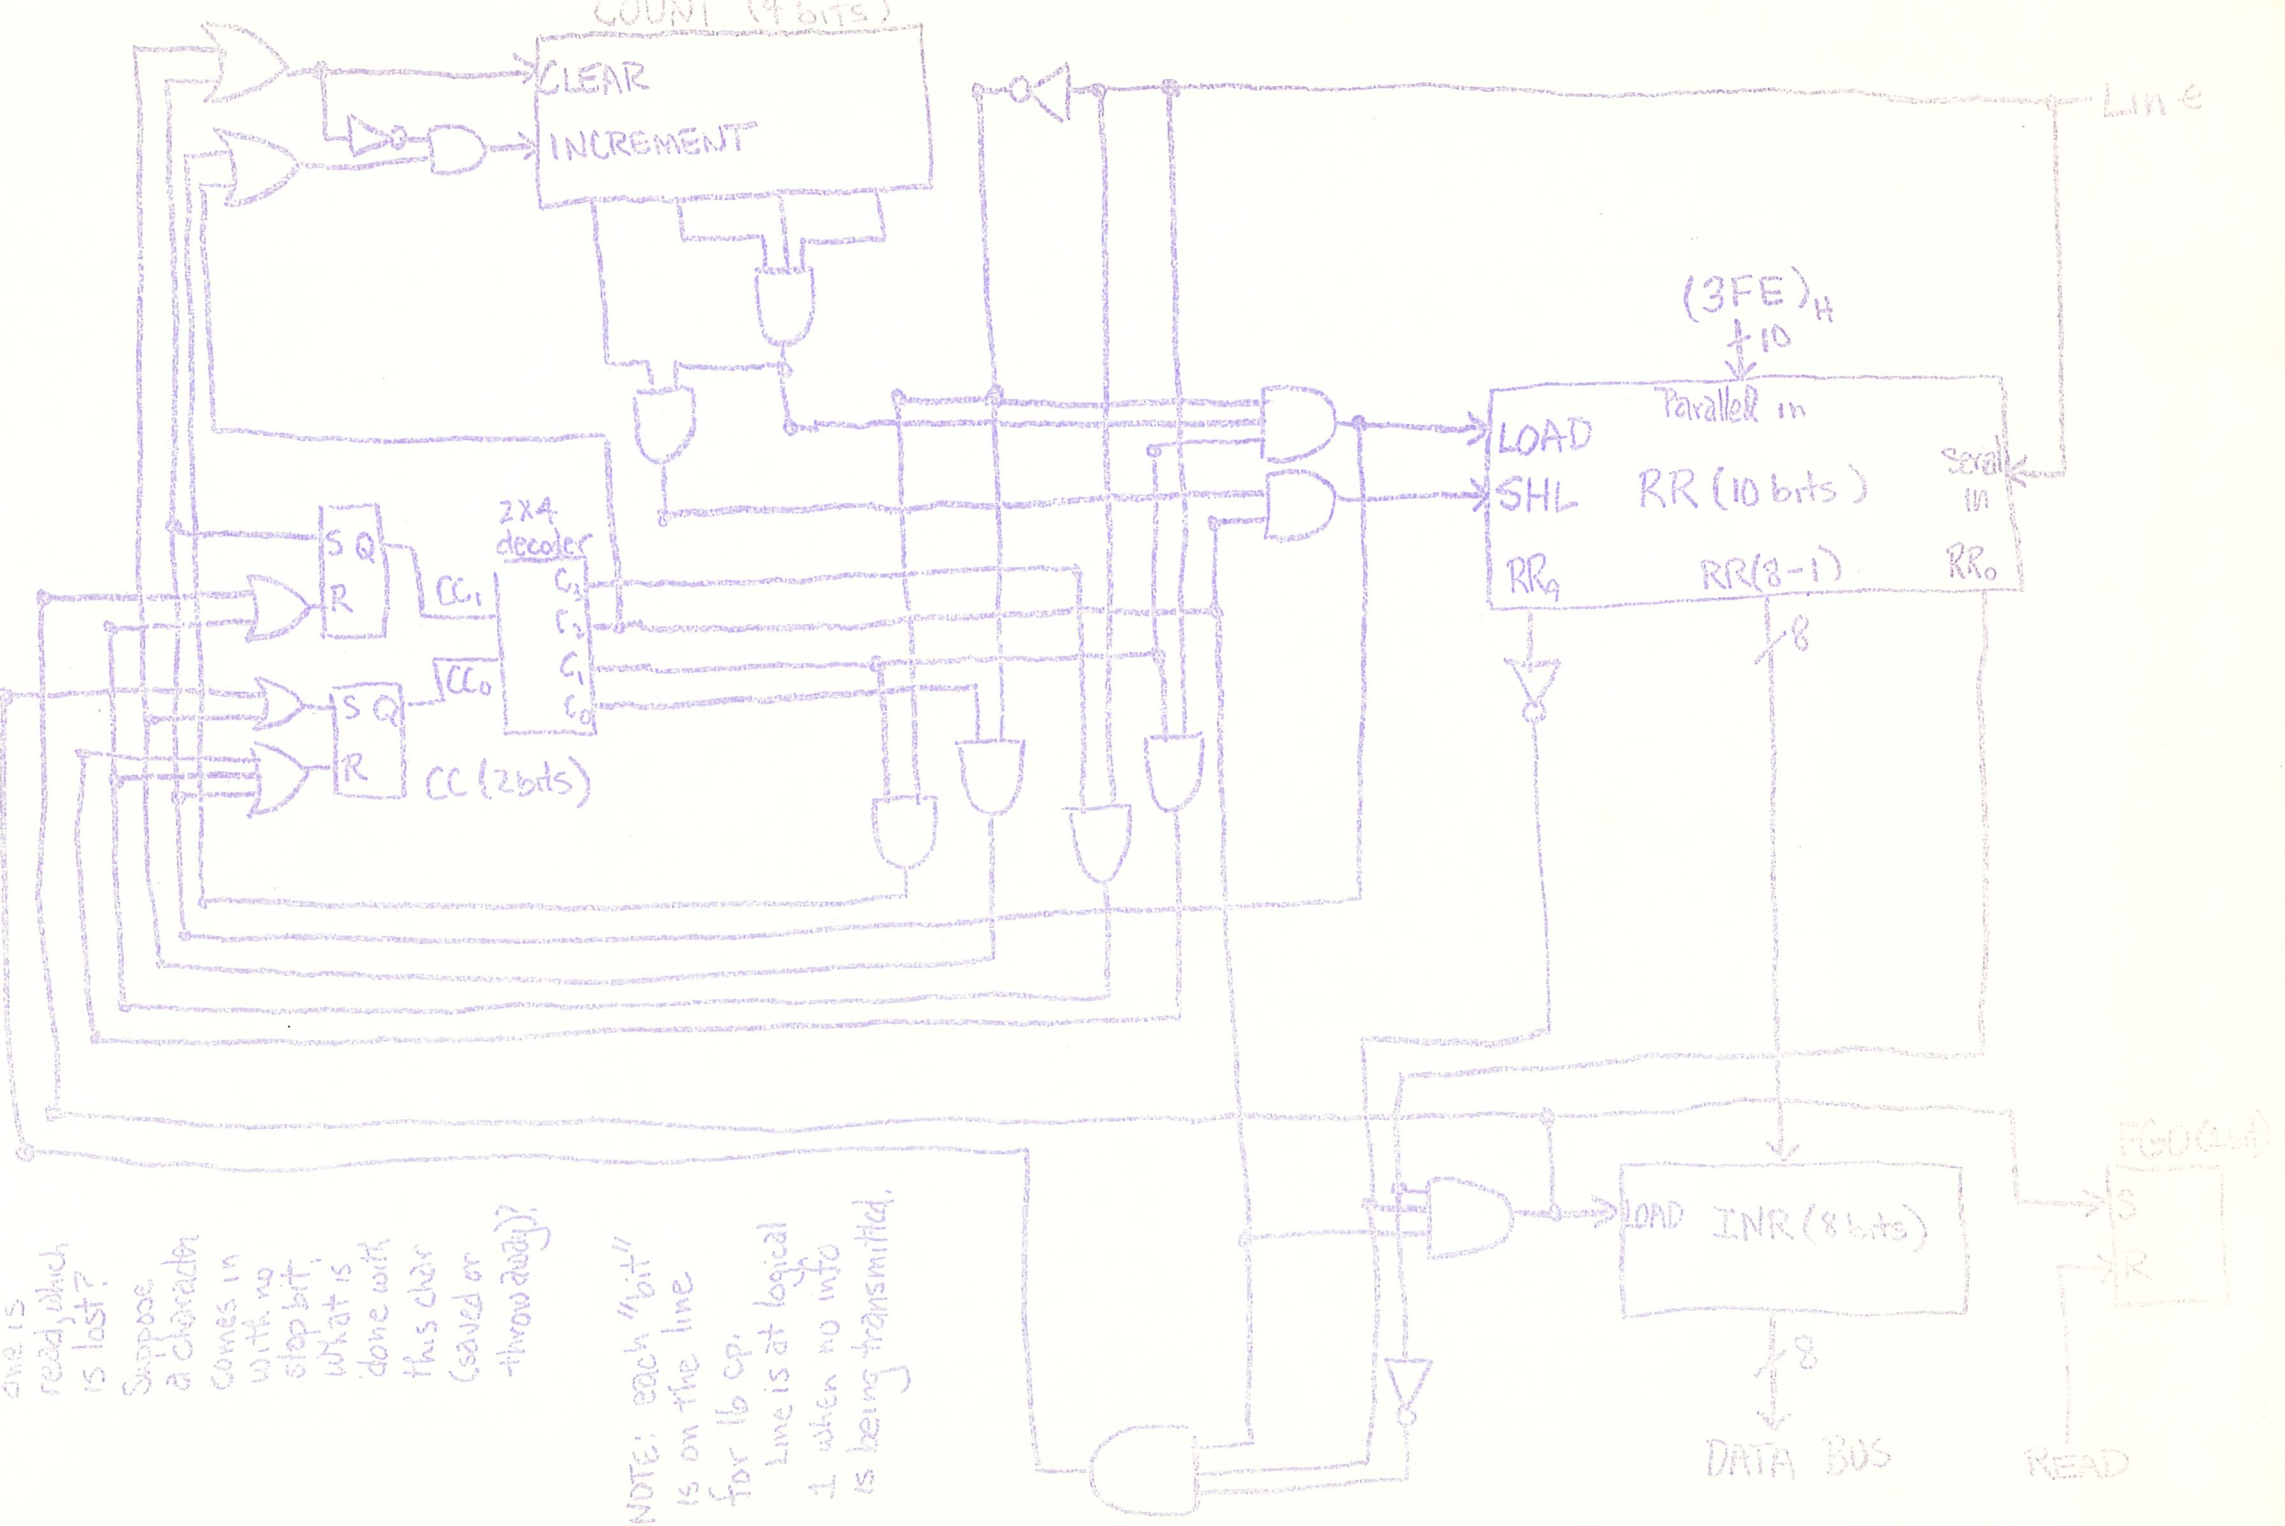 COUNT (4 bits)
CLEAR
INCREMENT
Line
(3FE)H
10
Parallel in
LOAD
SHL
RR (10 bits)
Serial
in
RR9
RR(8-1)
RR0
8
2X4
decoder
S Q
R
CC1
C3
C2
C1
C0
CC0
S Q
R
CC (2 bits)
FGO (1 bit)
S
R
LOAD
INR (8 bits)
8
DATA BUS
READ
one is
read, which
is lost?
Suppose
a character
comes in
with no
stop bit.
What is
done with
this char
(saved or
throw away)?
NOTE: each "bit"
is on the line
for 16 cp.
Line is at logical
1 when no info
is being transmitted.